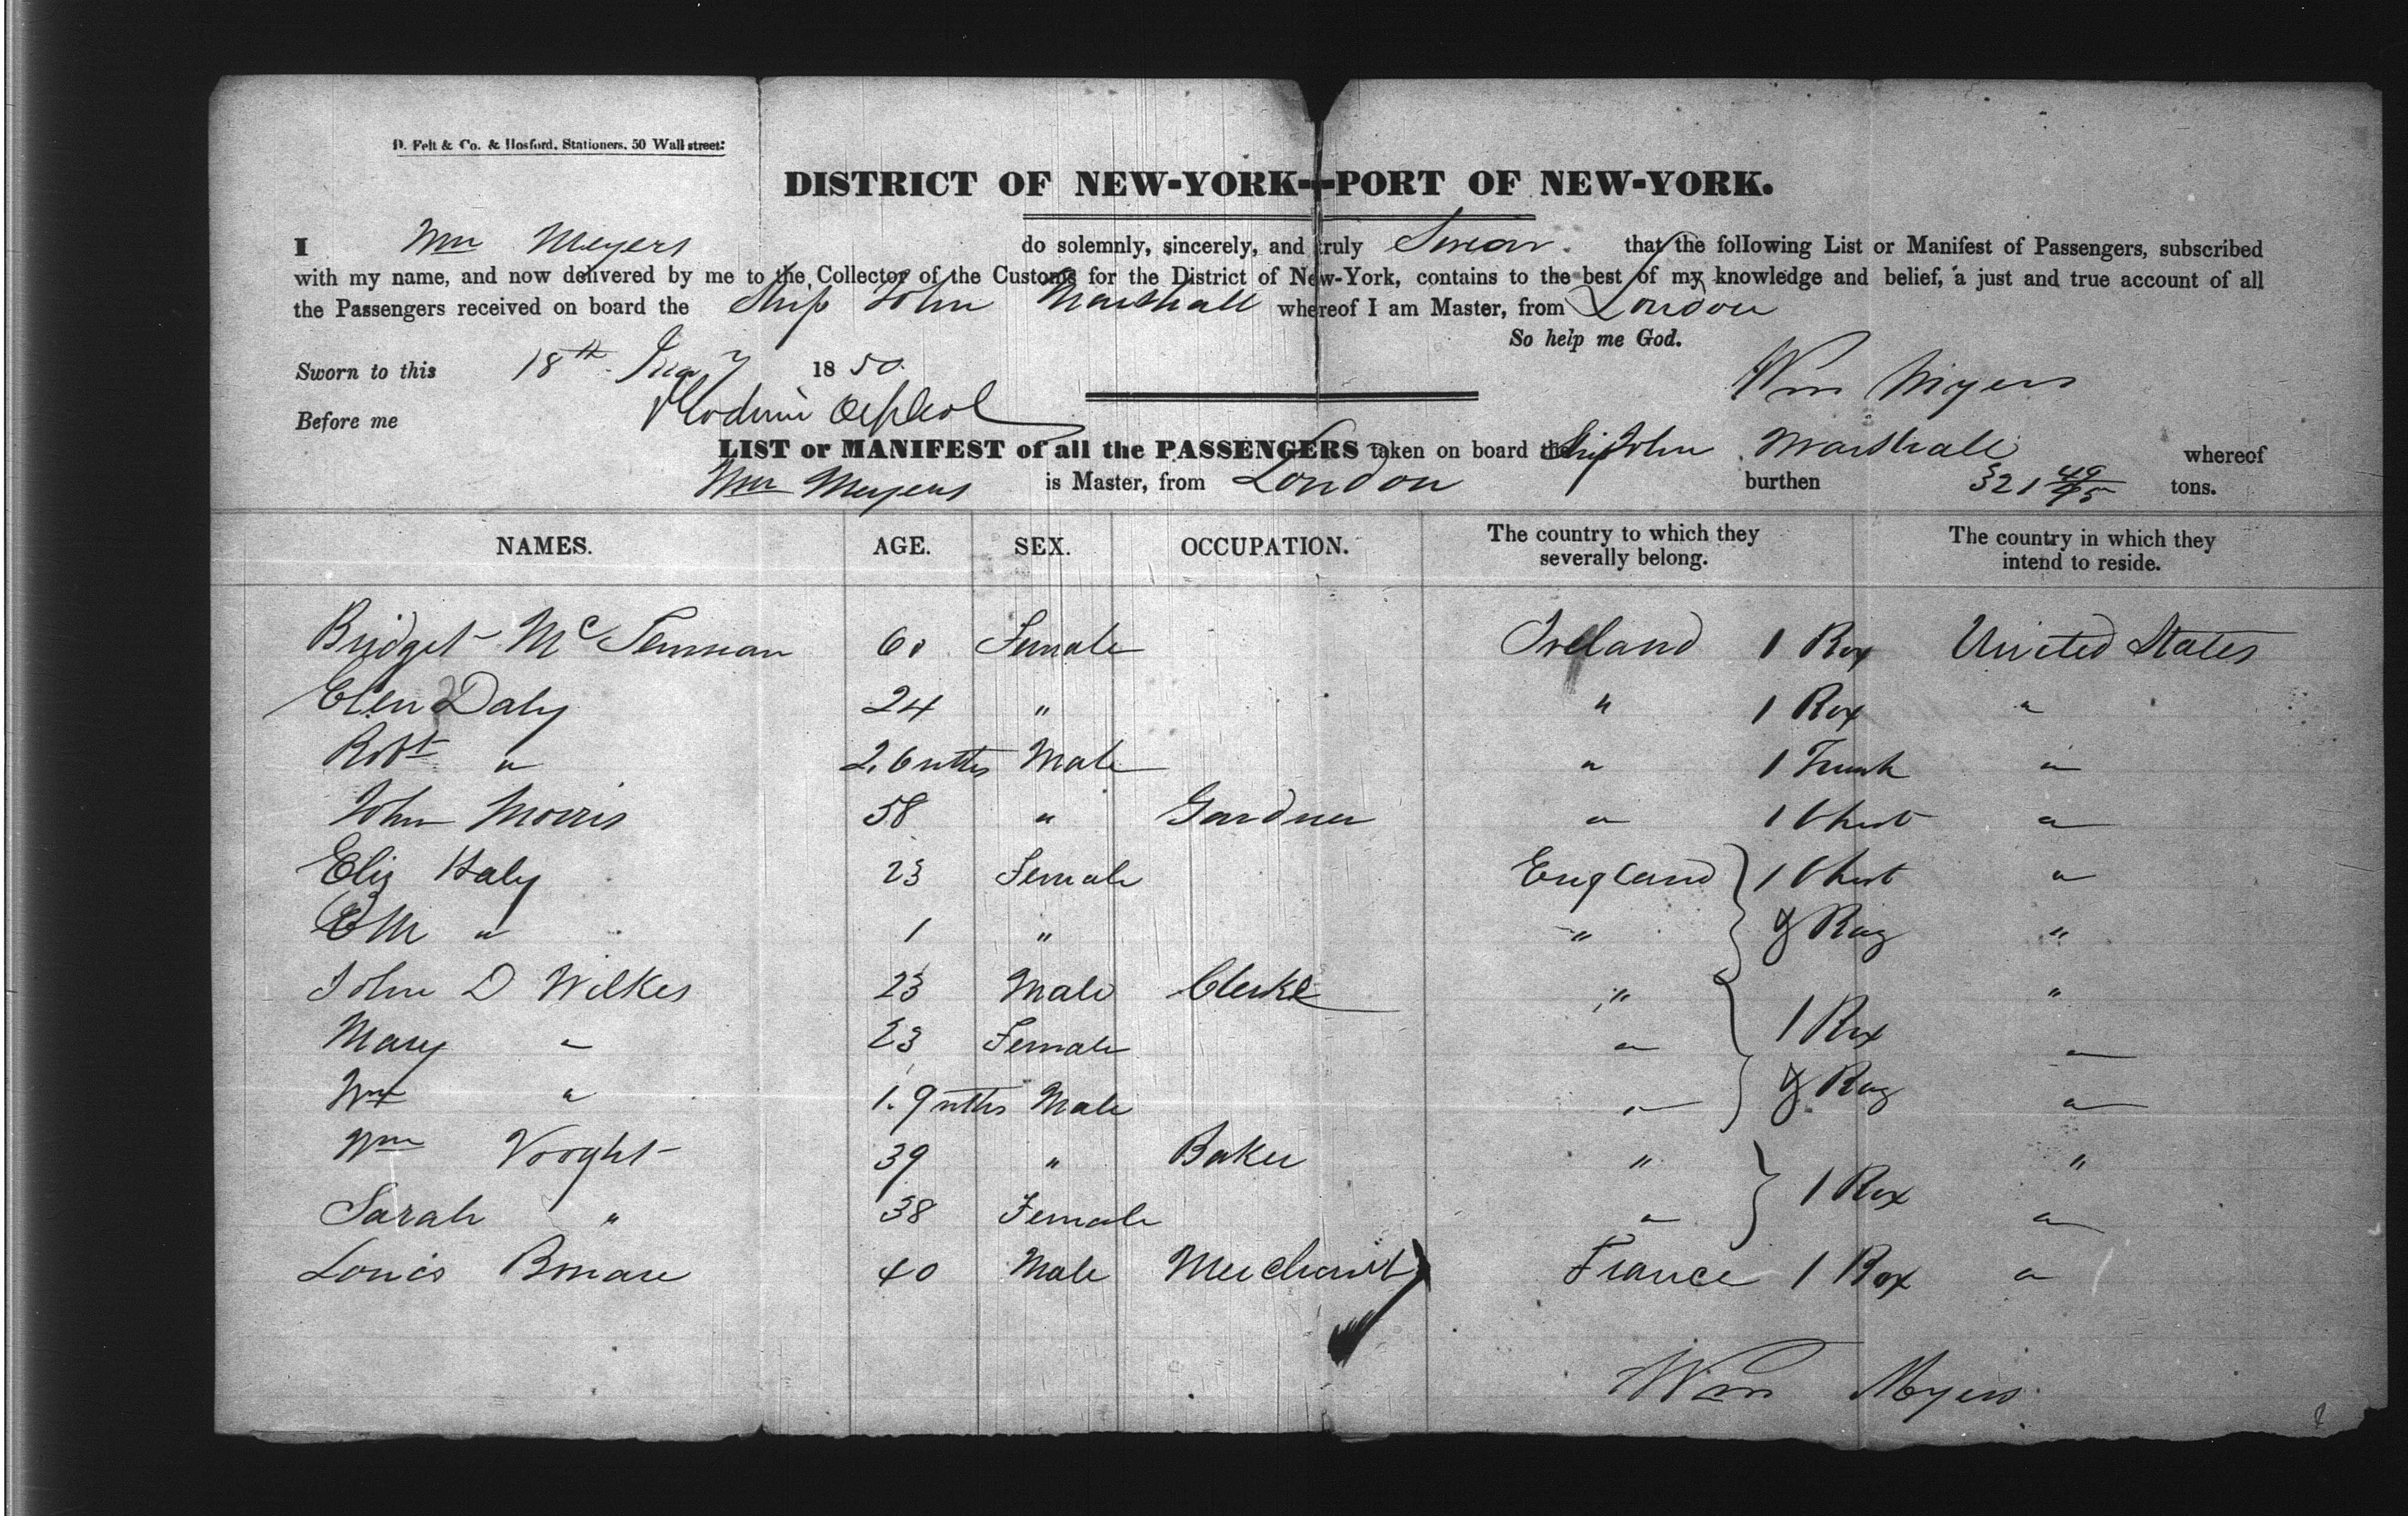 D. Felt & Co. & Hosford, Stationers, 50 Wall street:
DISTRICT OF NEW-YORK--PORT OF NEW-YORK.
I Wm Meyers do solemnly, sincerely, and truly Swear that the following List or Manifest of Passengers, subscribed
with my name, and now delivered by me to the Collector of the Customs for the District of New-York, contains to the best of my knowledge and belief, a just and true account of all
the Passengers received on board the Ship John Marshall whereof I am Master, from London
So help me God.
Sworn to this 18th 1850. Wm Myers
Before me
LIST or MANIFEST of all the PASSENGERS taken on board the Ship John Marshall whereof
Wm Meyers is Master, from London burthen 321 49/95 tons.
NAMES. AGE. SEX. OCCUPATION. The country to which they severally belong. The country in which they intend to reside.
Bridget Mc 60 Female Ireland 1 Box United States
Elen Daly 24 " " 1 Box "
Robt " 2.6 mths Male " 1 Trunk "
John Morris 58 " Gardner " 1 Chest "
Eliz Haly 23 Female England 1 Chest "
" 1 " " & Bag "
John D Wilkes 23 Male Clerke " "
Mary " 23 Female " 1 Box "
Wm " 1.9 mths Male " & Bag "
Wm Vooght 39 " Baker " "
Sarah " 38 Female " 1 Box "
Louis 40 Male Merchant France 1 Box "
Wm Myers